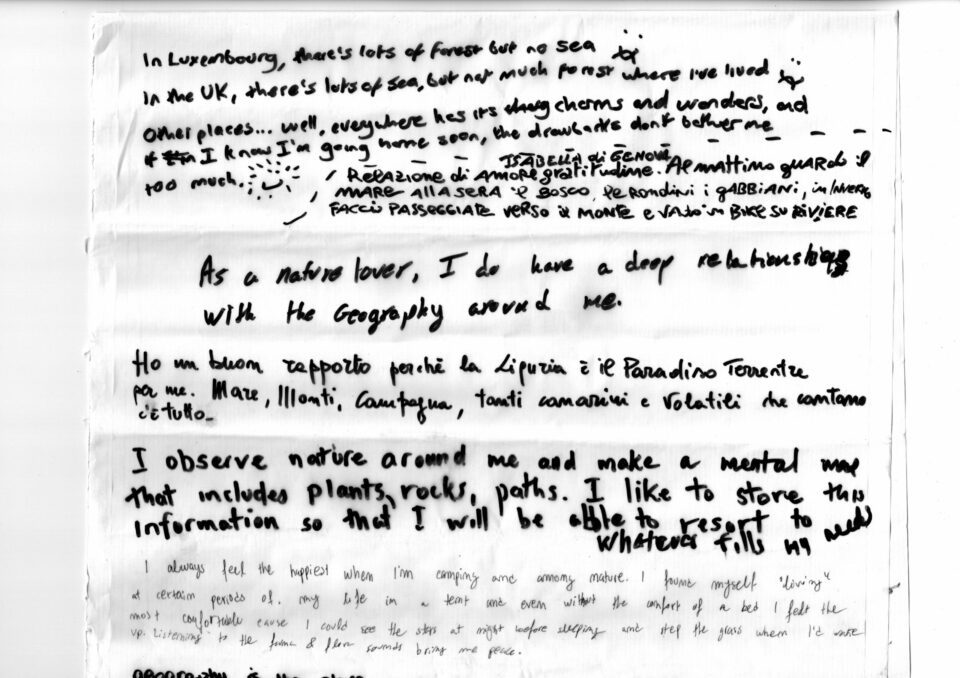 In Luxembourg, there's lots of forest but no sea
In the UK, there's lots of sea, but not much forest where I've lived
Other places... well, everywhere has its charms and wonders, and
if I know I'm going home soon, the drawbacks don't bother me
too much.
ISABELLA di GENOVA
RELAZIONE di AMORE gratitudine. Al mattino guardo il
MARE ALLA SERA il BOSCO, le RONDINI i GABBIANI, in INVERNO
FACCIO PASSEGGIATE VERSO il MONTE e VADO in BIKE SU RIVIERE
As a nature lover, I do have a deep relationship
with the Geography around me.
Ho un buon rapporto perchè la Liguria è il Paradiso Terrestre
per me. Mare, Monti, Campagna, tanti canarini e Volatili che cantano
c'è tutto
I observe nature around me and make a mental map
that includes plants, rocks, paths. I like to store this
information so that I will be able to resort to
whatever fills my needs
I always feel the happiest when I'm camping and among nature. I found myself "living"
at certain periods of my life in a tent and even without the comfort of a bed I felt the
most comfortable cause I could see the stars at night before sleeping and step the grass when I'd wake
up. Listening to the fauna & flora sounds bring me peace.
geography is the